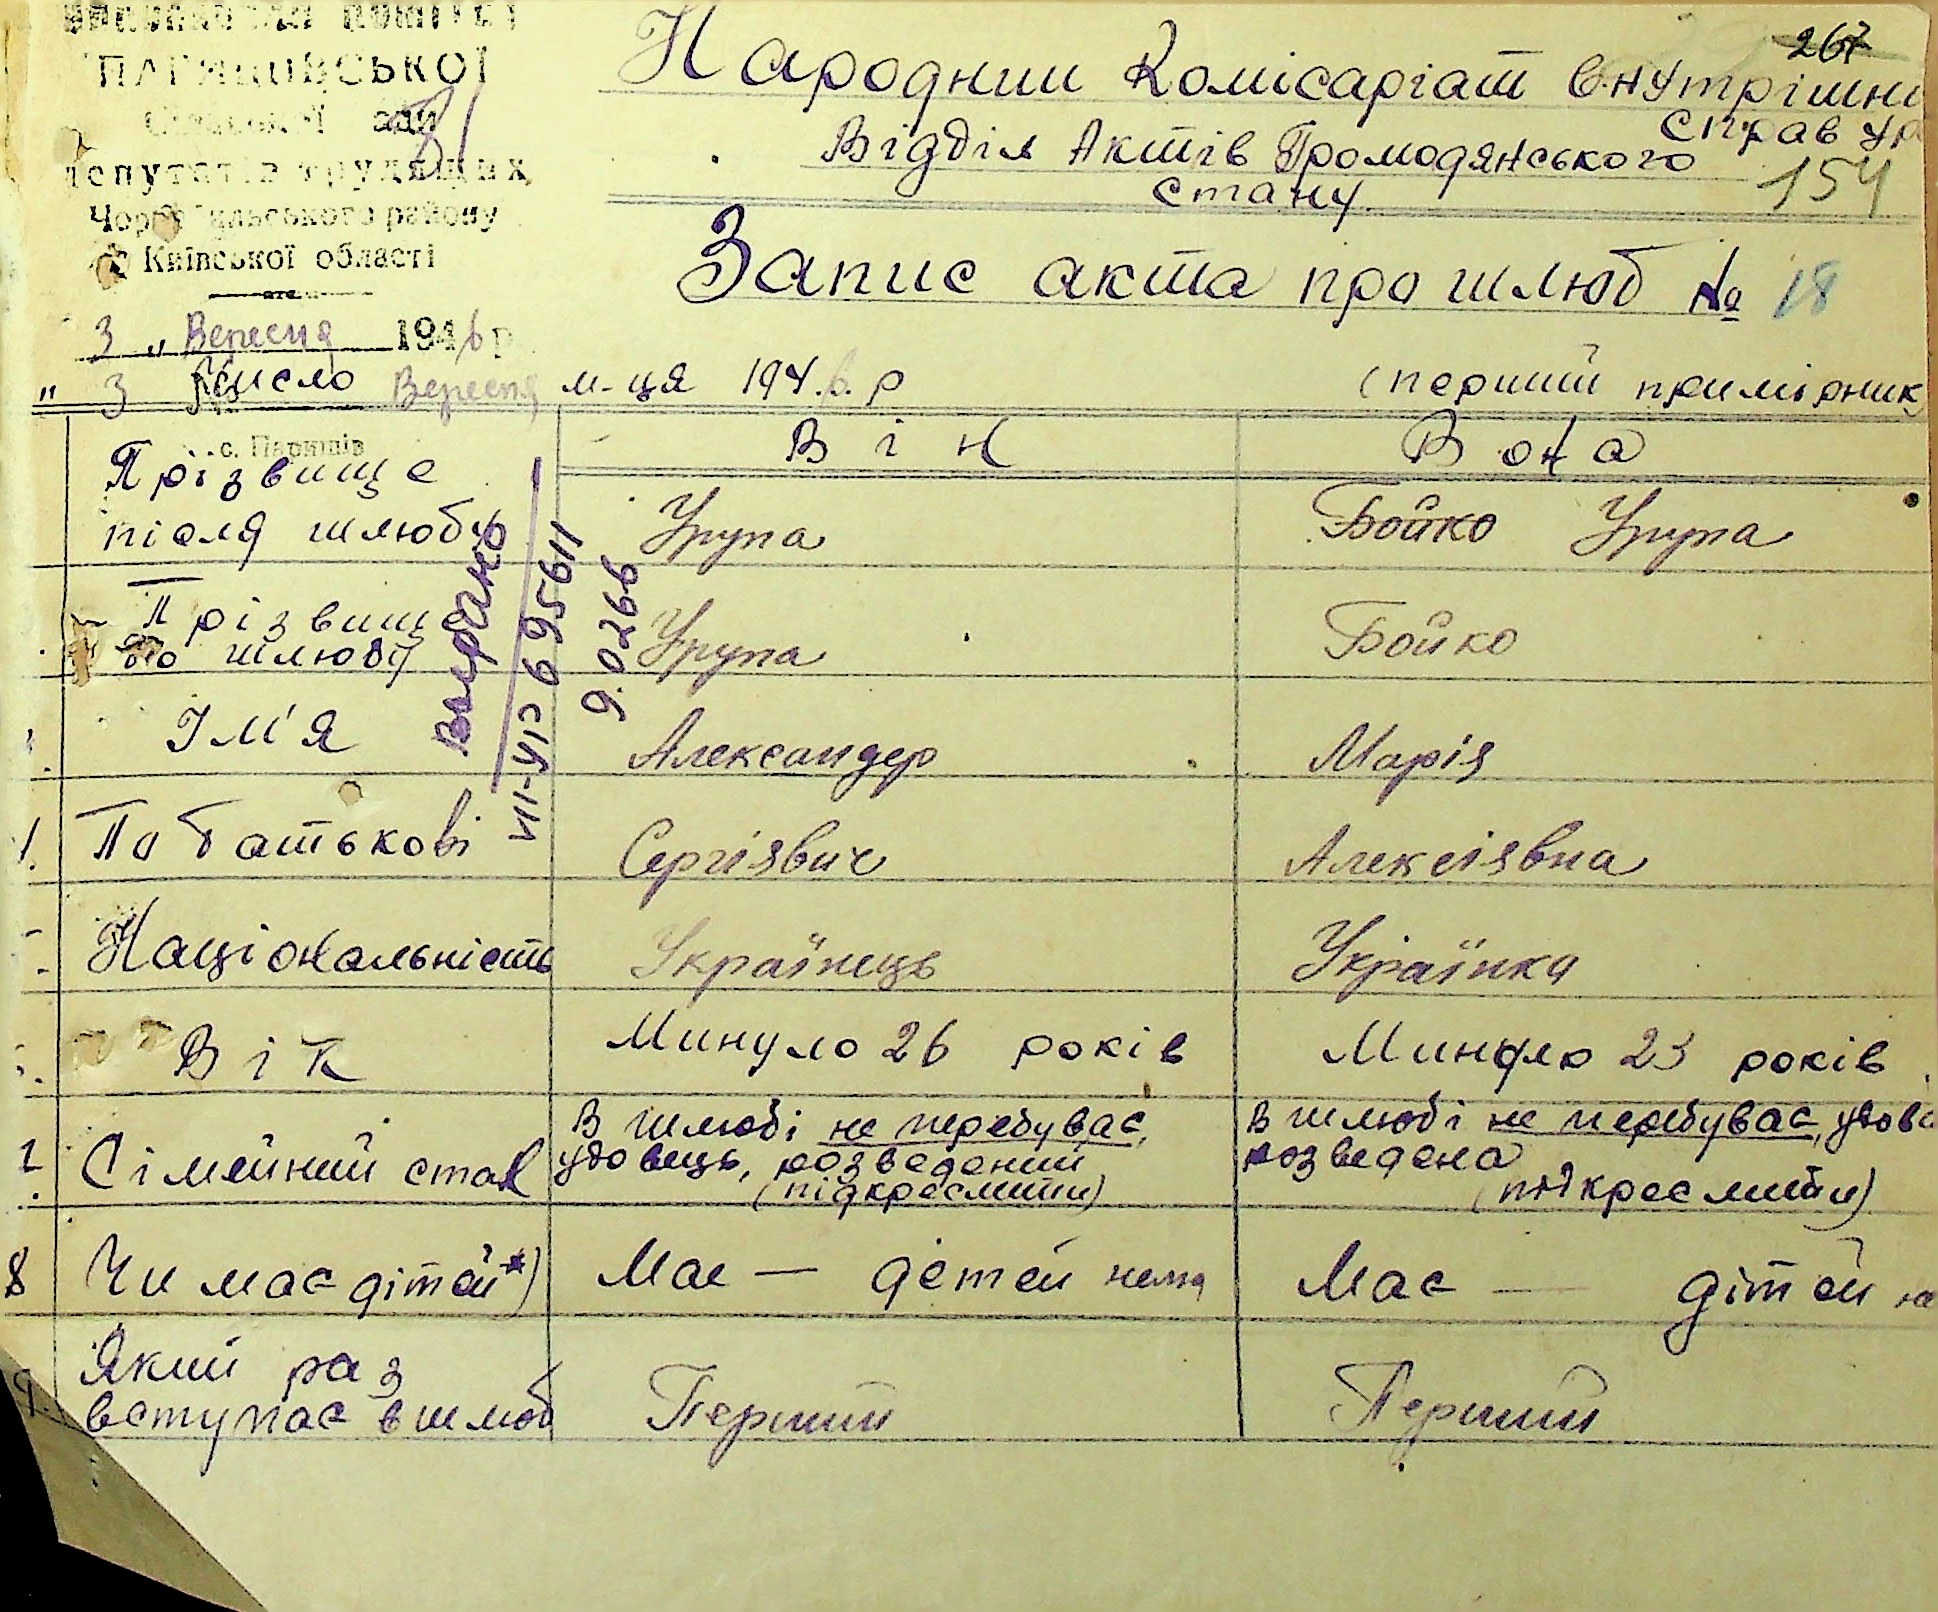 виконавчий комітет
ПАРИШІВСЬКОЇ
Сільської ради
депутатів трудящих
Чорнобильського району
Київської області
"3" Вересня 1946 р.
с. Паришів
267
Народний Комісаріат внутрішні
справ ур
Відділ Актів Громодянського
стану
154
Запис акта про шлюб № 18
" 3 число Вересня м-ця 194.6. р (перший примірник
Він Вона
Прізвище після шлюбу Урупа Бойко Урупа
Прізвище до шлюбу Урупа Бойко
Ім'я Александер Марія
По батькові Сергіявич Алексіявна
Національність Українець Українка
Вік Минуло 26 років Минуло 23 років
7. Сімейний стан В шлюбі не перебуває, удовець, розведений (підкреслити) В шлюбі не перебуває, удова розведена (підкреслити)
8 Чи має дітей*) Має — детей нема Має — дітей не
9. Який раз вступає в шлюб Перший Перший
VII-УР 695611
9.0266